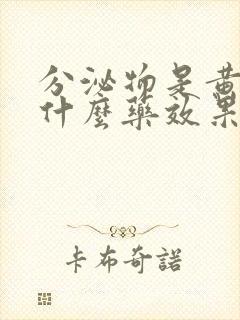 分泌物是黄
什麼藥效果
卡布奇諾